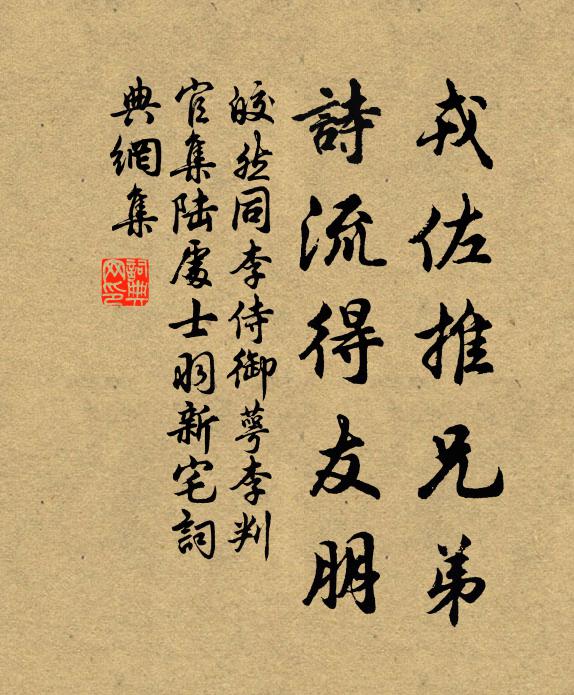 戎佐推兄弟
詩流得友朋
皎然同李侍御萼李判
官集陸處士羽新宅詞
典網集
詞典
网印